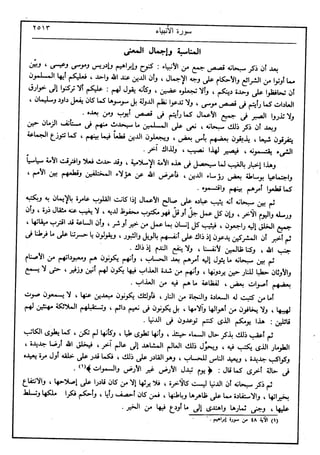 سورة الأنبياء ٢٥١٣
المناسبة وإجمال المعنى
بعد أن ذكر سبحانه قصص جمع من الأنبياء : كنوح وإبراهيم وإدريس وموسى وعيسى ، وبيّن
ما أوتوا من الشرائع والأحكام على وجه الإجمال ، وأن الدين عند الله واحد ، فعليكم أيها المسلمون
أن تحافظوا على وحدة دينكم ، وألا تجعلوه عضين ، وكأنه يقول لهم : عليكم ألا تركنوا إلى خوارق
العادات كما رأيتم في قصص موسى ، ولا تدعوا نظم الدولة بل سوسوها كما كان يفعل داود وسليمان ،
ولا تذروا الصبر في جميع الأعمال كما رأيتم في قصص أيوب ومن بعده .
وبعد أن ذكر ذلك سبحانه ، نعى على المسلمين ما سيحدث منهم في مستأنف الزمان حين
يتفرقون شيعا ، يذيقون بعضهم بأس بعض ، ويجعلون الدين قطعاً فيما بينهم ، كما تتوزع الجماعة
الشيء ، يقتسمونه ، فيصير لهذا نصيب ، ولذاك آخر .
وهذا إخبار بالغيب لما سيحصل في هذه الأمة الإسلامية ، وقد حدث فعلا وافترقت الأمة سياسياً
واجتماعيا بوساطة بعض رؤساء الدين ، فأعرض الله عن هؤلاء المختلفين وقطعهم بين الأمم ،
كما قطعوا أمرهم بينهم واقتسموه .
ثم بين سبحانه أنه يثيب عباده على صالح الأعمال إذا كانت القلوب عامرة بالإيمان به وبكتبه
ورسله واليوم الآخر ، وإن كل عمل جلّ أو قل فهو مكتوب محفوظ لديه ، لا يغيب عنه مثقال ذرة ، وأن
جميع الخلق إليه راجعون ، فيثيب كل إنسان بما عمل من خير أو شر ، وأن الساعة قد اقترب ميقاتها ،
ثم أخبر أن المشركين يدعون إذ ذاك على أنفسهم بالويل والثبور ، ويقولون يا حسرتنا على ما فرطنا في
جنب الله ، وكنا ظالمين لأنفسنا ، ولا ينفع الندم إذ ذاك .
ثم بين سبحانه ما يئول إليه أمرهم بعد الحساب ، وأنهم يكونون هم ومعبوداتهم من الأصنام
والأوثان حطبا للنار حين يردونها ، وأنهم من شدة العذاب فيها يكون لهم أنين وزفير ، حتى لا يسمع
بعضهم أصوات بعض ، لفظاعة ما هم فيه من العذاب .
أما من كتبت له السعادة والنجاة من النار ، فأولئك يكونون مبعدين عنها ، لا يسمعون صوت
لهيبها ، ولا يخافون من أهوالها وآلامها ، بل يكونون في نعيم دائم ، وتستقبلهم الملائكة مهنئين لهم
قائلين : هذا يومكم الذى كنتم توعدون في الدنيا .
ثم أعقب ذلك بذكر حال السماء حينئذ ، وأنها تطوى طيا ، وكأنها لم تكن ، كما يطوى الكاتب
الطومار الذى يكتب فيه ، ويحوّل ذلك العالم المشاهد إلى عالم آخر ، فيخلق الله أرضا جديدة ،
وكواكب جديدة ، ويعيد الناس للحساب ، وهو القادر على ذلك ، فكما قدر على خلقه أول مرة يعيده
في حالة أخرى كما قال : ﴿ يوم تبدل الأرض غير الأرض والسموات ﴾(١) .
ثم ذكر سبحانه أن الدنيا ليست كالآخرة ، فلا يرثها إلا من كان قادرا على إصلاحها ، والانتفاع
بخيراتها ، والاستفادة مما على ظاهرها وباطنها ، فمن كان أحصف رأيا ، وأحكم فكرا ملكها وتسلط
عليها ، وجنى ثمارها واهتدى إلى ما أودع فيها من الخير .
(١) الآية ٤٨ من سورة إبراهيم .